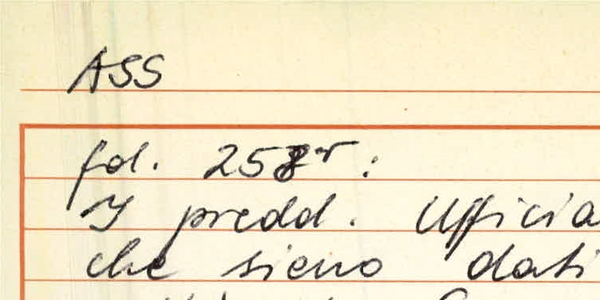 ASS
fol. 258r:
Y predd. Ufficia
che sieno dati